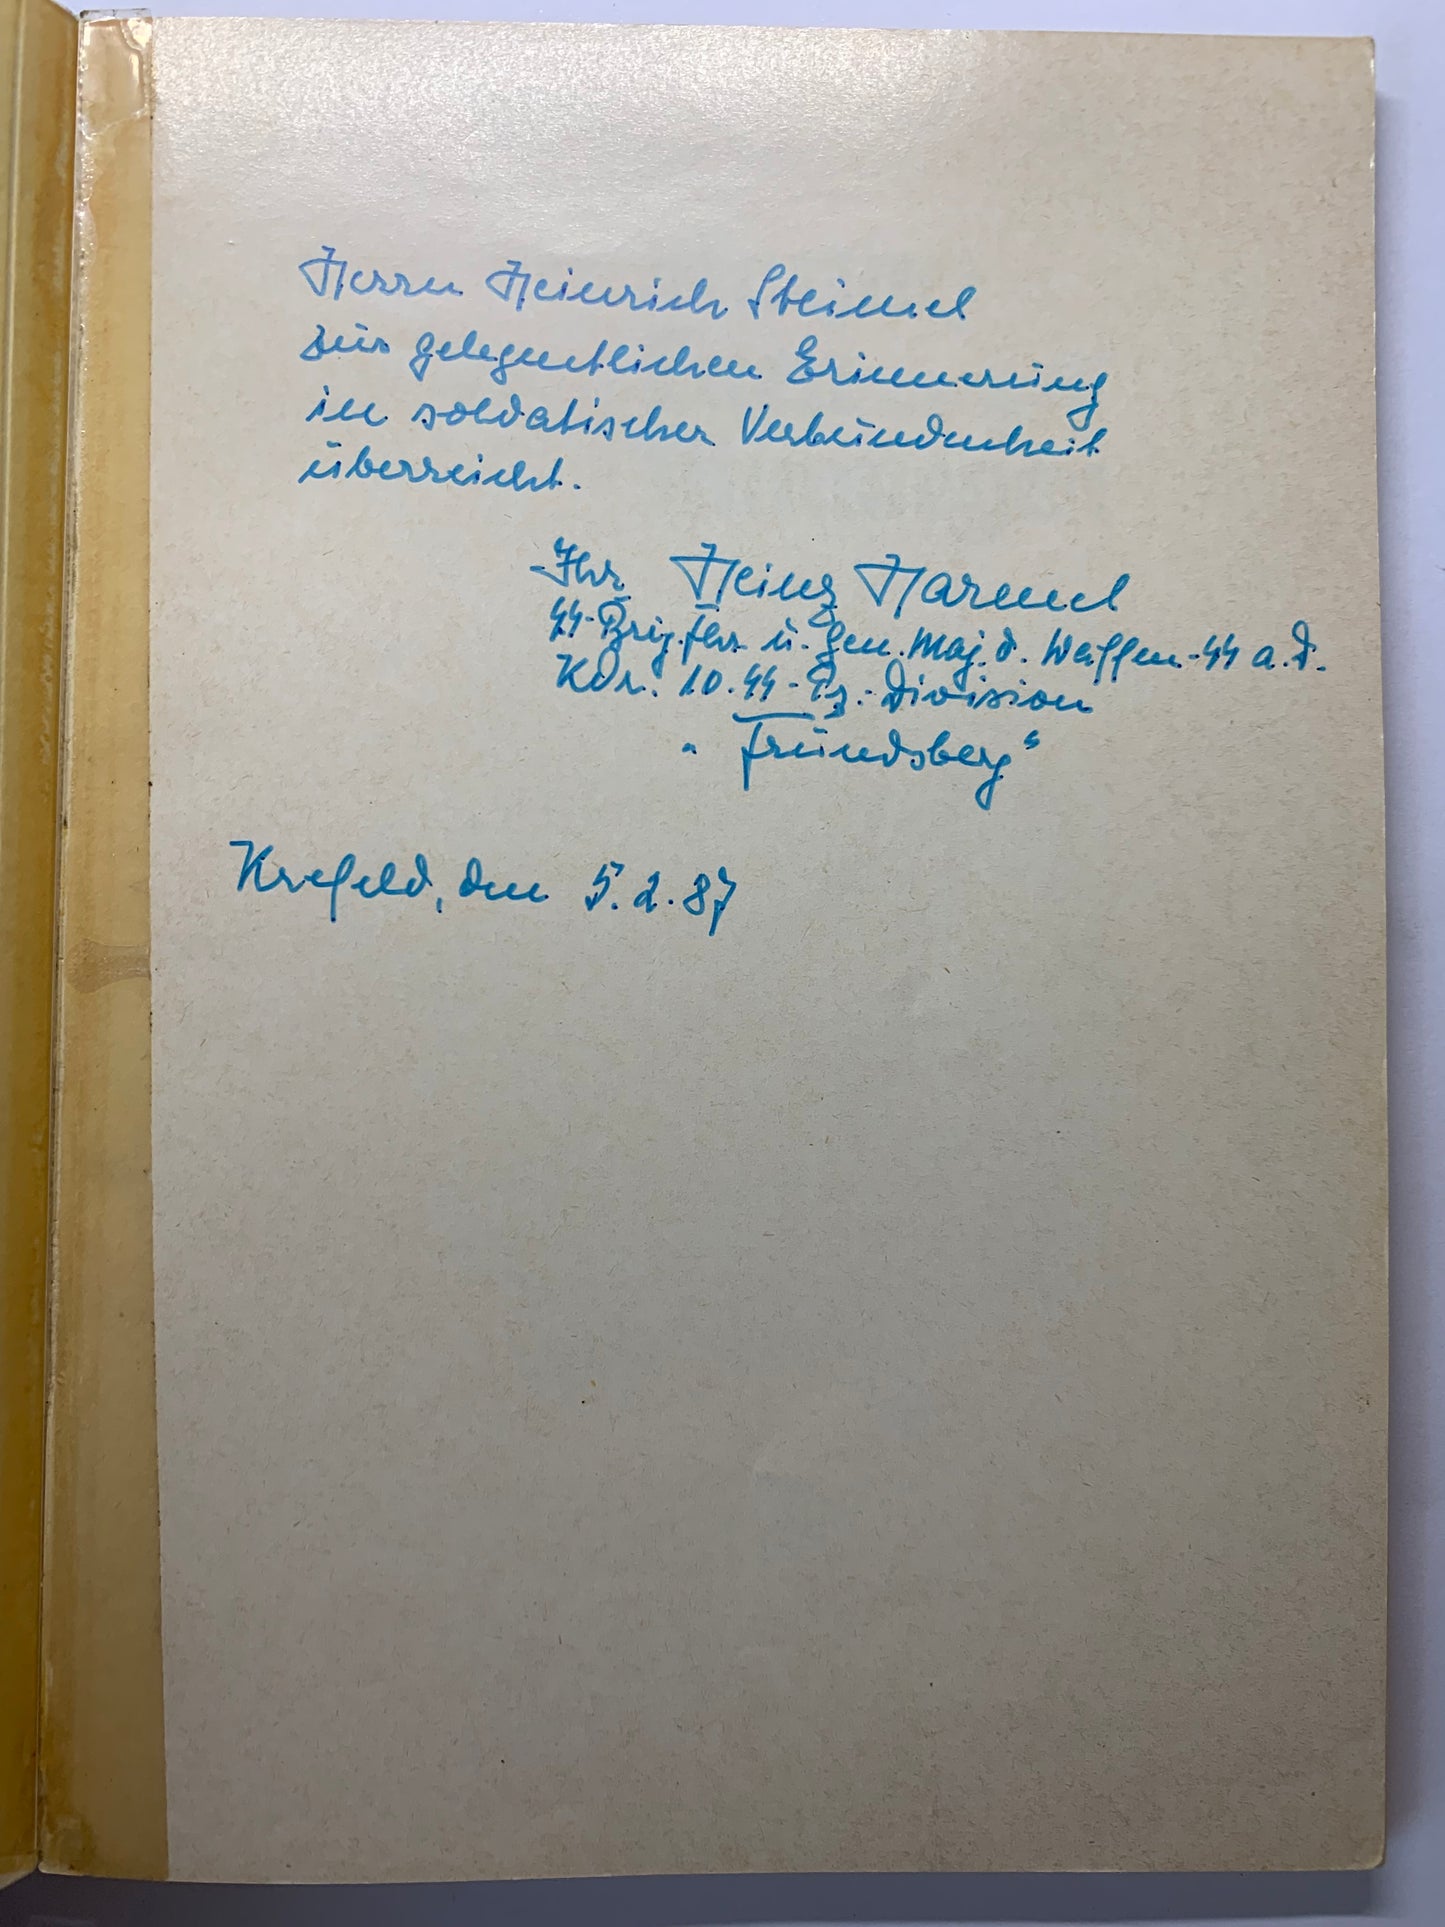 Herrn Heinrich Steimel
zur gelegentlichen Erinnerung
in soldatischer Verbundenheit
überreicht.
Ihr Heinz Harmel
SS-Brig.Fhr. u. Gen.Maj. d. Waffen-SS a.D.
Kdr. 10. SS-Pz.-Division
"Frundsberg"
Krefeld, den 5.2.87